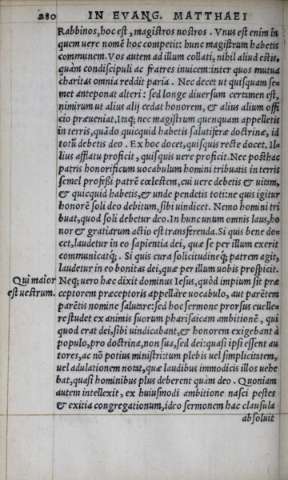 280 IN EVANG. MATTHAEI
Rabbinos, hoc est, magistros nostros. Vnus est enim in
quem uere nomē hoc competit: hunc magistrum habetis
communem. Vos autem ad illum collati, nihil aliud estis,
quàm condiscipuli ac fratres inuicem: inter quos mutua
charitas omnia reddit paria. Nec decet ut quisquam se-
met anteponat alteri: sed longe diuersum certamen est,
nimirum ut alius alij cedat honorem, & alius alium offi
cio præueniat. Itaq; nec magistrum quenquam appelletis
in terris, quādo quicquid habetis salutiferæ doctrinæ, id
totū debetis deo. Ex hoc docet, quisquis recte docet. Il-
lius afflatu proficit, quisquis uere proficit. Nec posthac
patris honorificum uocabulum homini tribuatis in terris
semel professi patrē cœlestem, cui uere debetis & uitam,
& quicquid habetis, & unde pendetis totiq; quis igitur
honorē soli deo debitum, sibi uindicet. Nemo homini tri
buat, quod soli debetur deo. In hunc unum omnis laus, ho
nor & gratiarum actio est transferenda. Si quis bene do-
cet, laudetur in eo sapientia dei, quæ se per illum exerit
communicatq;. Si quis cura solicitudineq; patrem agit,
laudetur in eo bonitas dei, quæ per illum uobis prospicit.
Qui maior Neq; uero hæc dixit dominus Iesus, quòd impium sit præ
est uestrum. ceptorem præceptoris appellare uocabulo, aut parētem
parētis nomine salutare: sed hoc sermone prorsus euelle-
re studet ex animis suorum pharisaicam ambitionē, qui
quod erat dei, sibi uindicabant, & honorem exigebant à
populo, pro doctrina, non sua, sed dei: quasi ipsi essent au
tores, ac nō potius ministri: tum plebis uel simplicitatem,
uel adulationem notat, quæ laudibus immodicis illos uehe
bat, quasi hominibus plus deberent quàm deo. Quoniam
autem intellexit, ex huiusmodi ambitione nasci pestes
& exitia congregationum, ideo sermonem hac clausula
absoluit